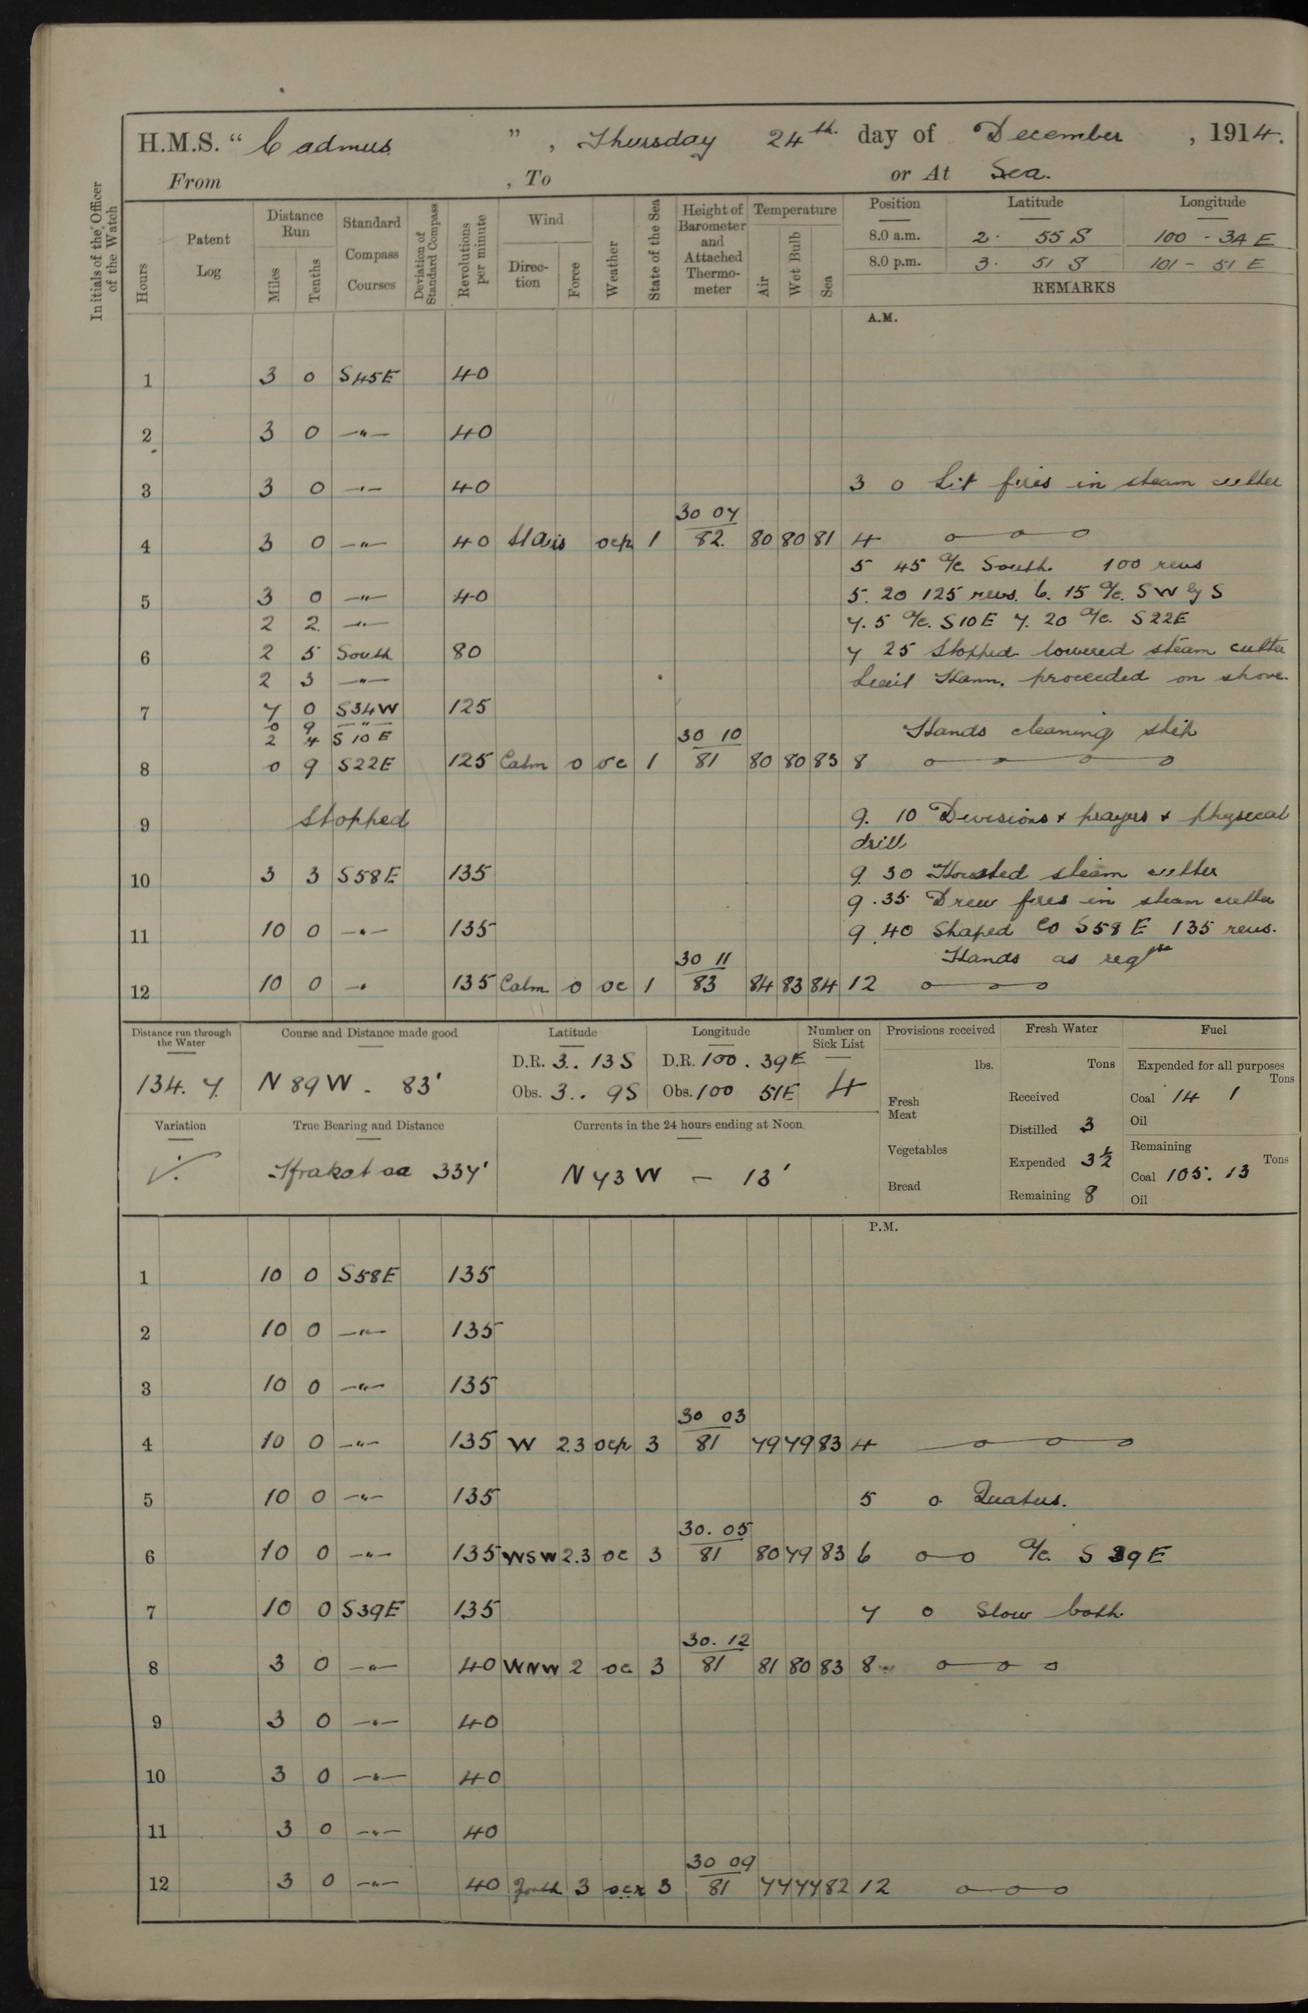 H.M.S. "Cadmus", Thursday 24th day of December, 1914.
From , To or At Sea.
Initials of the Officer of the Watch
Hours Patent Log Distance Run Miles Tenths Standard Compass Courses Deviation of Standard Compass Revolutions per minute Wind Direction Force Weather State of the Sea Height of Barometer and Attached Thermometer Temperature Air Wet Bulb Sea
Position Latitude Longitude
8.0 a.m. 2. 55 S 100 - 34 E
8.0 p.m. 3. 51 S 101 - 51 E
REMARKS
A.M.
1 3 0 S45E 40
2 3 0 -"- 40
3 3 0 -"- 40 3 0 Lit fires in steam cutter
30 07
4 3 0 -"- 40 ocp 1 82 80 80 81 4
5 45 A/c South. 100 revs
5 3 0 -"- 40 5. 20 125 revs. 6. 15 A/c. SW by S
2 2 -"- 7. 5 A/c. S10E 7. 20 A/c. S22E
6 2 5 South 80 7 25 Stopped lowered steam cutter
2 3 -"- Lieut Hann. proceeded on shore.
7 7 0 S34W 125
0 9 -"- Hands cleaning ship
2 4 S10E 30 10
8 0 9 S22E 125 Calm 0 oc 1 81 80 80 83 8
9 Stopped 9. 10 Divisions & prayers & physical
drill
10 3 3 S58E 135 9. 30 Hoisted steam cutter
9. 35 Drew fires in steam cutter
11 10 0 -"- 135 9. 40 Shaped Co S58E 135 revs.
30 11 Hands as reqd
12 10 0 -"- 135 Calm 0 oc 1 83 84 83 84 12
Distance run through the Water
134. 7
Course and Distance made good
N 89 W - 83'
Latitude
D.R. 3. 13 S
Obs. 3.. 9 S
Longitude
D.R. 100. 39 E
Obs. 100 51 E
Number on Sick List
4
Variation
True Bearing and Distance
Krakatoa 337'
Currents in the 24 hours ending at Noon
N 73 W - 13'
Provisions received
lbs.
Fresh Meat
Vegetables
Bread
Fresh Water
Tons
Received
Distilled 3
Expended 3½
Remaining 8
Fuel
Expended for all purposes
Tons
Coal 14 1
Oil
Remaining
Tons
Coal 105. 13
Oil
P.M.
1 10 0 S58E 135
2 10 0 -"- 135
3 10 0 -"- 135
30 03
4 10 0 -"- 135 W 2.3 ocp 3 81 79 79 83 4
5 10 0 -"- 135 5 0 Quarters.
30. 05
6 10 0 -"- 135 WSW 2.3 oc 3 81 80 79 83 6 A/c. S 39 E
7 10 0 S39E 135 7 0 Slow both
30. 12
8 3 0 -"- 40 WNW 2 oc 3 81 81 80 83 8
9 3 0 -"- 40
10 3 0 -"- 40
11 3 0 -"- 40
30 09
12 3 0 -"- 40 South 3 ocr 3 81 77 77 82 12